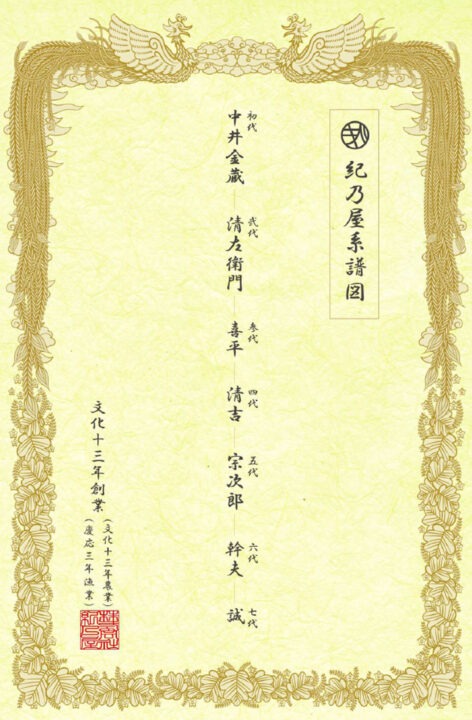 紀乃屋系譜図
初代
中井金蔵
弐代
清左衛門
参代
喜平
四代
清吉
五代
宗次郎
六代
幹夫
七代
誠
文化十三年創業
(文化十三年農業)
(慶応三年漁業)